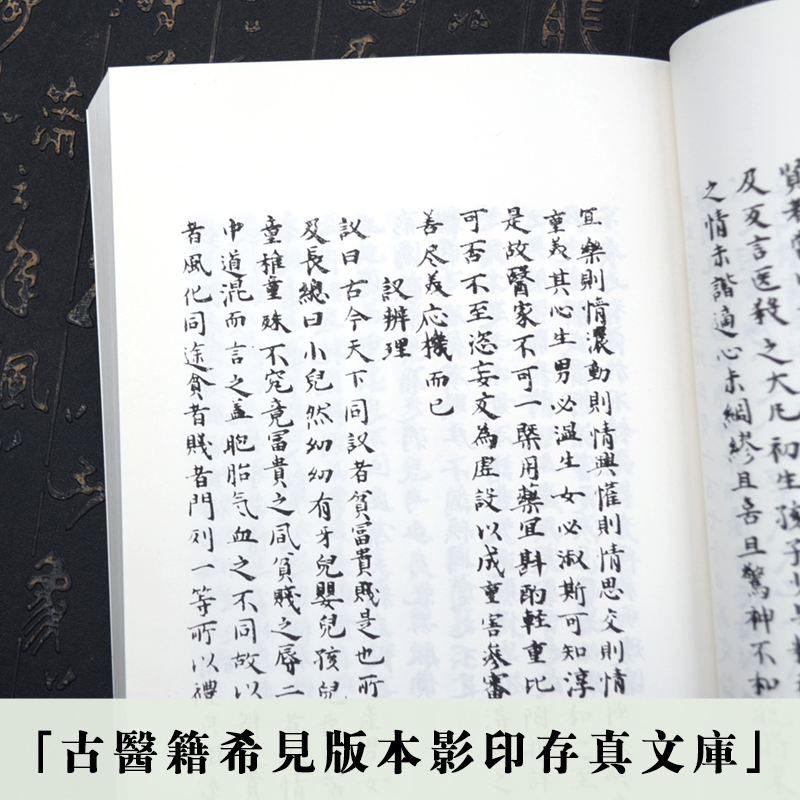 賢者當
及歹言医殺之大凡初生孩子
之情未諧適心未綢繆且喜且驚神不和
宜樂則情濃動則情興懽則情思交則情
重羙其心生男必温生女必淑斯可知淳
是故醫家不可一槩用藥宜斟酌輕重比
可否不至恣妄文為虛設以成重害叅審
善尽羙応機而已
議辨理
議曰古今天下同議者貧富貴賤是也所
及長總曰小兒然幼幼有牙兒嬰兒孩兒
童稚童殊不究竟富貴之鳳貧賤之辱二
中道混而言之盖胞胎气血之不同故以
者風化同途貪者賤者門列一等所以禮
「古醫籍希見版本影印存真文庫」